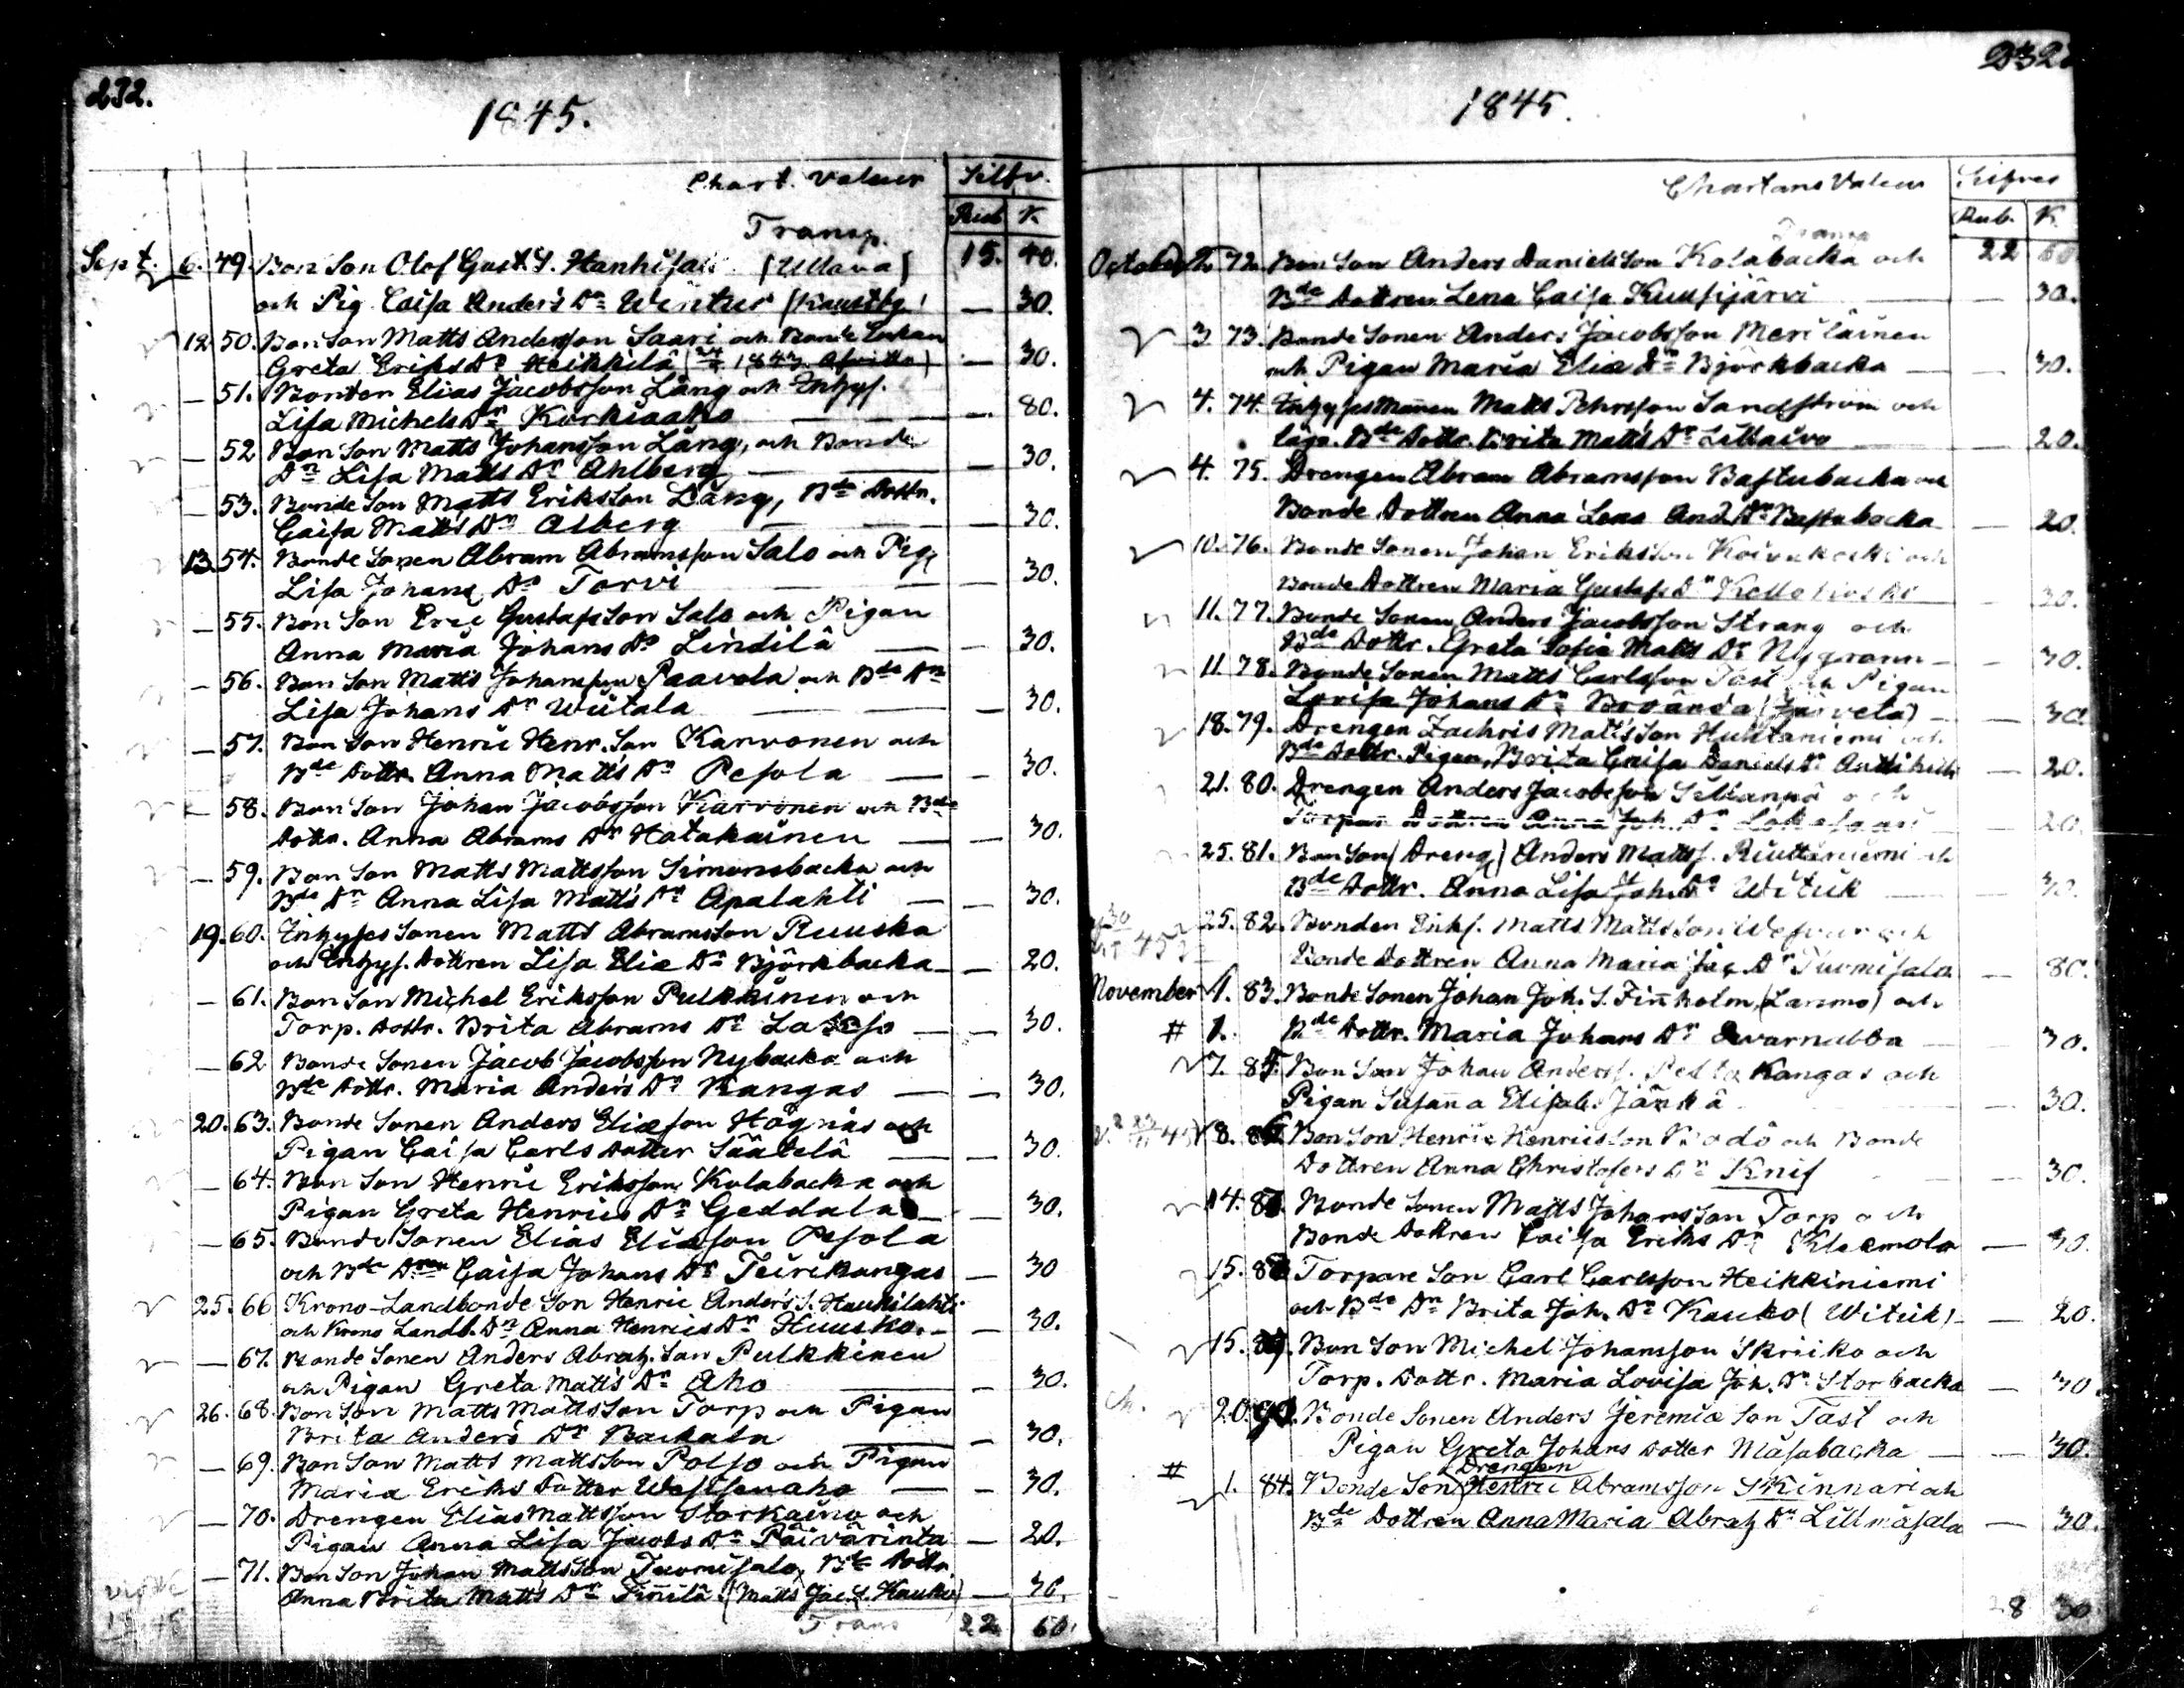 232.
1845.
Chart. Valeur Silfv.
Rub K.
Transp.
Sept. 6. 49. Bon Son Olof Gust. S. Hanhisalo (Ullava) 15. 40.
och Pig. Caisa Anders Dr Wintur (Kaustby) — 30.
12. 50. Bon Son Matts Andersson Saari och Bonde Enkan
Greta Eriks Dr Heikkilä — 30.
— 51. Bonden Elias Jacobsson Lång och Inhys.
Lisa Michels Dr Korkiaaho — 80.
— 52 Bon Son Matts Johansson Lång, och Bonde
Dn Lisa Matts Dr Ahlberg — 30.
— 53. Bonde Son Matts Eriksson Lång, Bde Dottr.
Caisa Matts Dr Alberg — 30.
13. 54. Bonde Sonen Abram Abramsson Salo och Pig.
Lisa Johans Dr Torvi — 30.
— 55. Bon Son Eric Gustafsson Salo och Pigan
Anna Maria Johans Dr Lindilä — 30.
— 56. Bon Son Matts Johansson Paavola och Bde Dn
Lisa Johans Dr Wiitala — 30.
— 57. Bon Son Henric Henr. Son Karvonen och
Bde Dottr. Anna Matts Dr Pesola — 30.
— 58. Bon Son Johan Jacobsson Karvonen och Bde
Dottr. Anna Abrams Dr Hatakainen — 30.
— 59. Bon Son Matts Mattsson Simonsbacka och
Bde Dn Anna Lisa Matts Dr Apalahti — 30.
19. 60. Inhyses Sonen Matts Abramsson Ruuska
och Inhys. Dottren Lisa Eliæ Dr Björkbacka — 20.
— 61. Bon Son Michel Eriksson Pulkkinen och
Torp. Dottr. Brita Abrams Dr — 30.
— 62 Bonde Sonen Jacob Jacobsson Nybacka och
Bde Dottr. Maria Anders Dr Kangas — 30.
20. 63. Bonde Sonen Anders Eliæson Högnäs och
Pigan Caisa Carls Dotter Säätelä — 30.
— 64. Bon Son Henric Eriksson Kolabacka och
Pigan Greta Henrics Dr Geddala — 30.
— 65. Bonde Sonen Elias Eliasson Pesola
och Bde Dren Caisa Johans Dr Teirikangas — 30
25. 66 Krono-Landbonde Son Henric Anders S. Haukilahti
och Krono Landb. Dn Anna Henrics Dr Huusko. — 30.
— 67. Bonde Sonen Anders Abrah. Son Pulkkinen
och Pigan Greta Matts Dr Aho — 30.
26. 68. Bon Son Matts Mattsson Torp och Pigan
Brita Anders Dr Backala — 30.
— 69. Bon Son Matts Mattsson Polso och Pigan
Maria Eriks Dotter — 30.
— 70. Drengen Elias Mattsson Storkaivo och
Pigan Anna Lisa Jacobs Dr Päivärinta — 20.
— 71. Bon Son Johan Mattsson Tuomisalo, Bde Dottr.
Anna Brita Matts Dr Finnilä. (Matts Jac. S. Kauko) — 30.
Trans 22 60.
1845.
Chartans Valeur Silfver
Rub. K.
Transp
October 2. 72. Bon Son Anders Danielsson Kolabacka och 22 60
Bde Dottren Lena Caisa Kuusijärvi — 30.
3 73. Bonde Sonen Anders Jacobsson Meriläinen
och Pigan Maria Eliæ Dr Björkbacka — 30.
4. 74. Inhyses Mannen Matts Pehrsson Sandström och
Bde Dottr. Brita Matts Dr Lillkaivo — 20.
4. 75. Drengen Abram Abramsson Bastubacka och
Bonde Dottren Anna Lena And. Dr Bastubacka — 20.
10. 76. Bonde Sonen Johan Eriksson Koivukoski och
Bonde Dottren Maria Gustafs Dr Kellokoski — 30.
11. 77. Bonde Sonen Anders Jacobsson Strang och
Bde Dottr. Greta Sofia Matts Dr Nygrann — 30.
11. 78. Bonde Sonen Matts Carlsson Tast och Pigan
Lovisa Johans Dr Broända (Järvelä) — 30.
18. 79. Drengen Zachris Mattsson Huhtaniemi och
Bde Dottr. Pigan, Brita Caisa Daniels Dr — 20.
21. 80. Drengen Anders Jacobsson Sillanpä och
Torpare Dottren Anna Joh. Dr — 20.
25. 81. Bon Son (Dreng) Anders Matts. Riuttaniemi och
Bde Dottr. Anna Lisa Joh. Dr Witick — 30.
25. 82. Bonden Enkl. Matts Mattsson och
Bonde Dottren Anna Maria Jac. Dr Tuomisala — 80.
November 1. 83. Bonde Sonen Johan Joh. S. Finnholm (Larsmo) och
# 1. Bde Dottr. Maria Johans Dr Qvarnabba — 30.
7. 85. Bon Son Johan Anders. Kangas och
Pigan Susanna Elisab. Jänkä — 30.
8. 86. Bon Son Henric Henricsson Bodö och Bonde
Dottren Anna Christofers Dr Knif — 30.
14. 87. Bonde Sonen Matts Johansson Torp och
Bonde Dottren Caisa Eriks Dr Kleemola — 30.
15. 88 Torpare Son Carl Carlsson Heikkiniemi
och Bde Dn Brita Joh. Dr Kauko (Witick) — 20.
15. 89. Bon Son Michel Johansson Skriiko och
Torp. Dottr. Maria Lovisa Joh. Dr Storbacka — 30.
20. 90. Bonde Sonen Anders Jeremiæ Son Tast och
Pigan Greta Johans Dotter Måsabacka — 30.
Drengen
# 1. 84. Bonde Son Henric Abramsson Skinnari och
Bde Dottren Anna Maria Abrah. Dr Lillmåsala — 30.
28 30